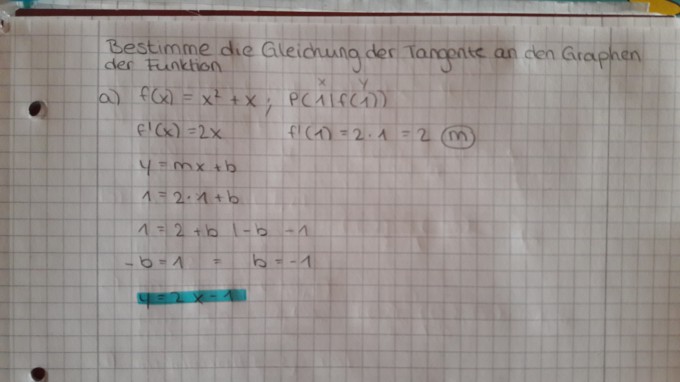 Bestimme die Gleichung der Tangente an den Graphen
der Funktion
x y
a) f(x) = x² + x ; P(1|f(1))
f'(x) = 2x f'(1) = 2·1 = 2 (m)
y = mx + b
1 = 2·1 + b
1 = 2 + b |-b -1
-b = 1 = b = -1
y = 2x - 1